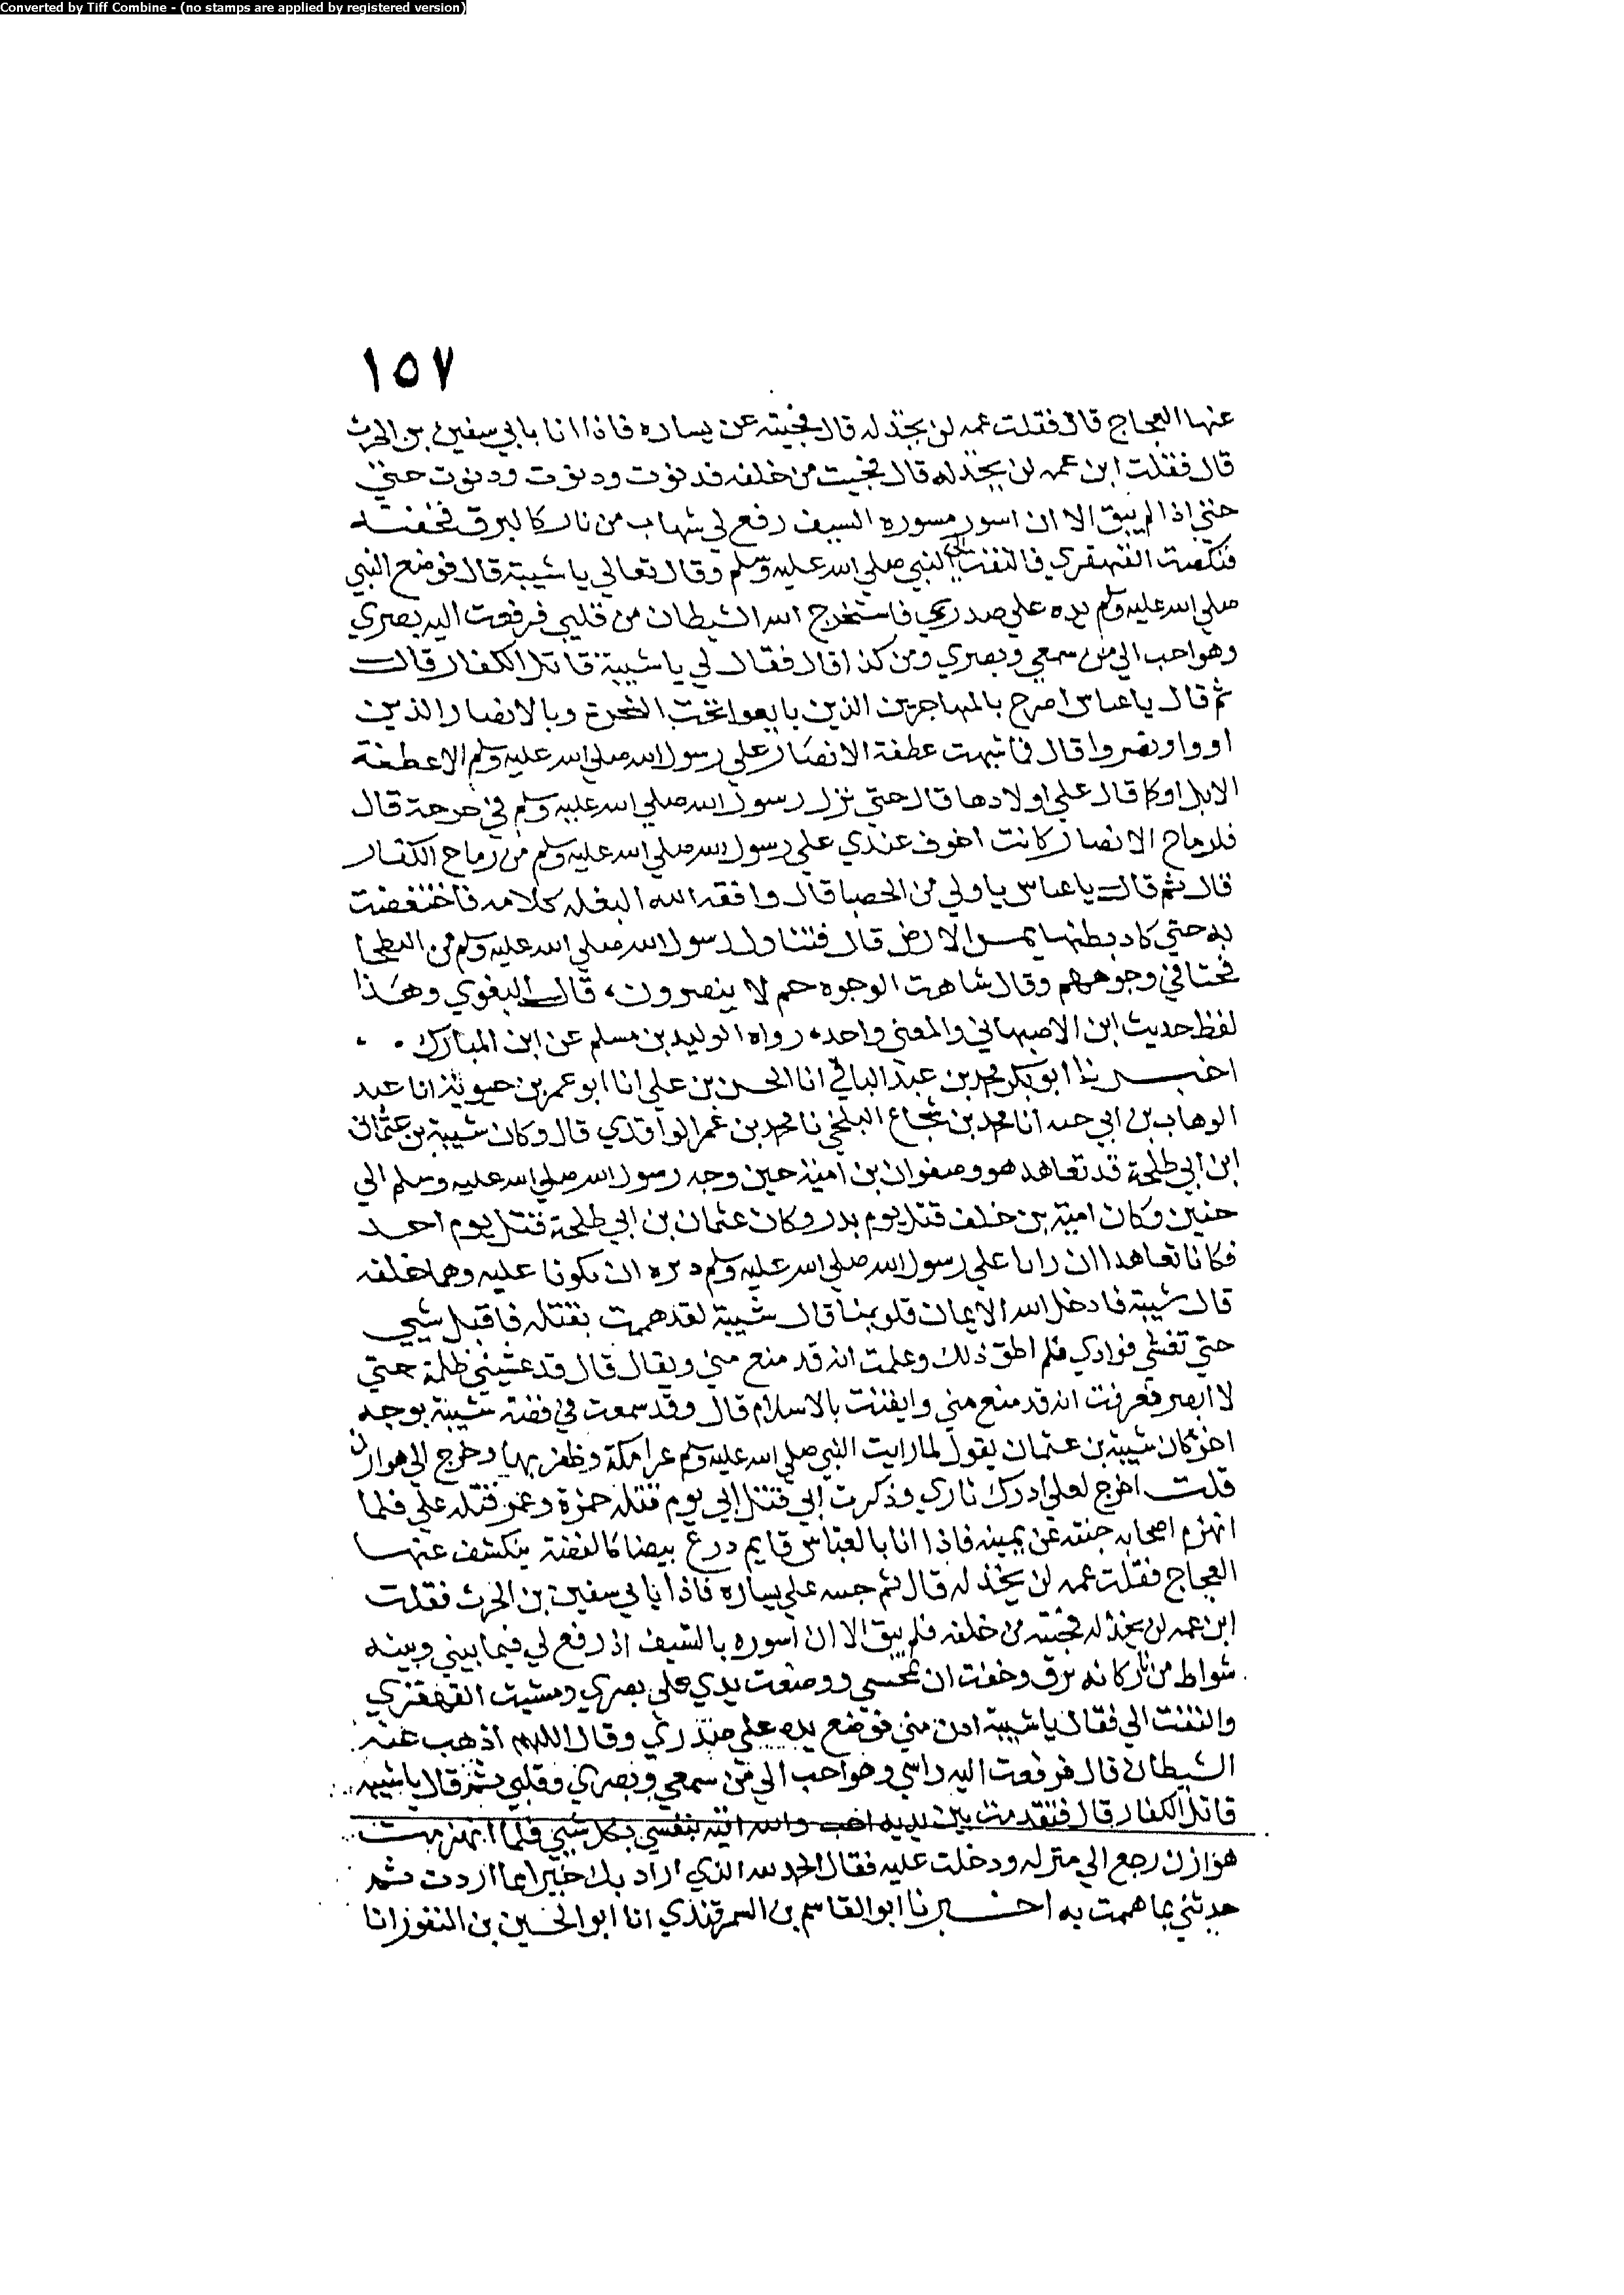 Converted by Tiff Combine - (no stamps are applied by registered version)
١٥٧
عنها العجاج قال فقلت عمه لن يخذله قال فجيته عن يساره فاذا انا بابي سفين بن الحرث
قال فقلت ابن عمه لن يخذله قال فجيت من خلفه فدنوت ودنوت ودنوت حتي
حتي اذا لم يبق الا ان اسور مسوره السيف رفع لي شهاب من نار كالبرق فخفته
فنكصت القهقري فالتفت الي النبي صلي الله عليه وسلم وقال تعالي يا شيبة قال فوضع النبي
صلي الله عليه وسلم يده علي صدري فاستخرج الله الشيطان من قلبي فرفعت اليه بصري
وهو احب الي من سمعي وبصري ومن كذا قال فقال لي يا شيبة قاتل الكفار قال
ثم قال يا عباس اصرح بالمهاجرين الذين بايعوا تحت الشجرة وبالانصار الذين
اووا ونصروا قال فما شبهت عطفة الانصار علي رسول الله صلي الله عليه وسلم الا عطفة
الابل او كما قال علي اولادها قال حتي نزل رسول الله صلي الله عليه وسلم في حرجة قال
فلرماح الانصار كانت اخوف عندي علي رسول الله صلي الله عليه وسلم من رماح الكفار
قال ثم قال يا عباس ياولي من الحصبا قال وافقه الله البغله كلامه فاختفضت
به حتي كاد بطنها يمس الارض قال فتناول رسول الله صلي الله عليه وسلم من البطحا
فحثا في وجوههم وقال شاهت الوجوه حم لا ينصرون، قال البغوي وهذا
لفظ حديث ابن الاصبهاني والمعني واحد، رواه الوليد بن مسلم عن ابن المبارك
اخبرنا ابو بكر محمد بن عبد الباقي انا الحسن بن علي انا ابو عمر بن حيوية انا عبد
الوهاب بن ابي حيه انا محمد بن شجاع البلخي نا محمد بن عمر الواقدي قال وكان شيبة بن عثمان
ابن ابي طلحة قد تعاهد هو وصفوان بن امية حين وجه رسول الله صلي الله عليه وسلم الي
حنين وكان امية بن خلف قتل يوم بدر وكان عثمان بن ابي طلحة قتل يوم احد
فكانا تعاهدا ان رايا علي رسول الله صلي الله عليه وسلم دبره ان يكونا عليه وهما خلفه
قال شيبة فادخل الله الايمان قلوبنا قال شيبة لقد هممت بقتله فاقبل شي
حتي تغشي فوادي فلم اطق ذلك وعلمت انه قد منع مني ويقال قال قد غشيني ظلمة حتي
لا ابصر فعرفت انه قد منع مني وايقنت بالاسلام قال وقد سمعت في قصة شيبة بوجه
اخر كان شيبة بن عثمان يقول لما رايت النبي صلي الله عليه وسلم غزا مكة وظفر بها وخرج الي هوازن
قلت اخرج لعلي ادرك ثاري وذكرت ابي قتل ابي يوم قتله حمزة وعمي قتله علي فلما
انهزم اصحابه جئته عن يمينه فاذا انا بالعباس قايم درع بيضا كالفضة ينكشف عنها
العجاج فقلت عمه لن يخذله قال ثم جيته علي يساره فاذا بابي سفين بن الحرث فقلت
ابن عمه لن يخذله فجئته من خلفه فلم يبق الا ان اسوره بالسيف اذ رفع لي فيما بيني وبينه
شواظ من نار كانه برق وخفت ان يمحشني ووضعت يدي علي بصري ومشيت القهقري
والتفت الي فقال يا شيبة ادن مني فوضع يده علي صدري وقال اللهم اذهب عنه
الشيطان قال فرفعت اليه راسي وهو احب الي من سمعي وبصري وقلبي ثم قال يا شيبه
قاتل الكفار قال فتقدمت بين يديه احب والله اقيه بنفسي بكل شي فلما انهزمت
هوازن رجع الي منزله ودخلت عليه فقال الحمد لله الذي اراد بك خيرا مما اردت ثم
حدثني بما هممت به اخبرنا ابو القاسم بن السمرقندي انا ابو الحسين بن النقور انا